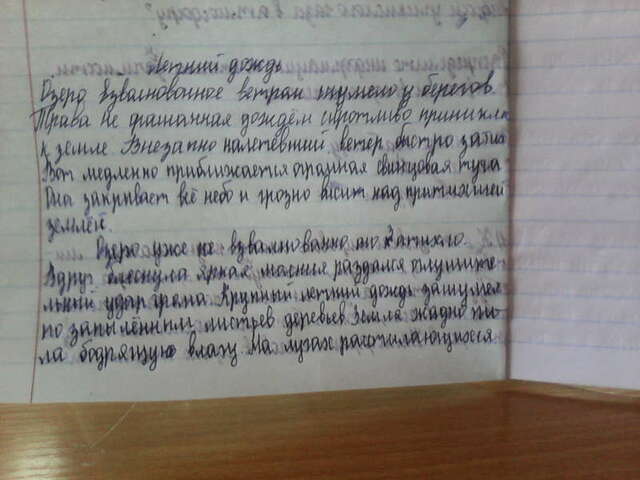 Летний дождь
Озеро взвалнованное ветран шумело у берегов.
Трава не фашанная дождём сиротливо приникла
к земле. Внезапно налетевший ветер быстро затих
Вот медленно приближается огромная свинцовая туча
Она закрывает всё небо и грозно висит над притихшей
землёй.
Озеро уже не взвалнованно оно затихло.
Вдруг блеснула яркая молния раздался оглушите-
льный удар грома. Крупный летний дождь зашумел
по запылённым листьев деревьев Земля жадно пи-
ла бодрящую влагу. На лугах расстилающихся